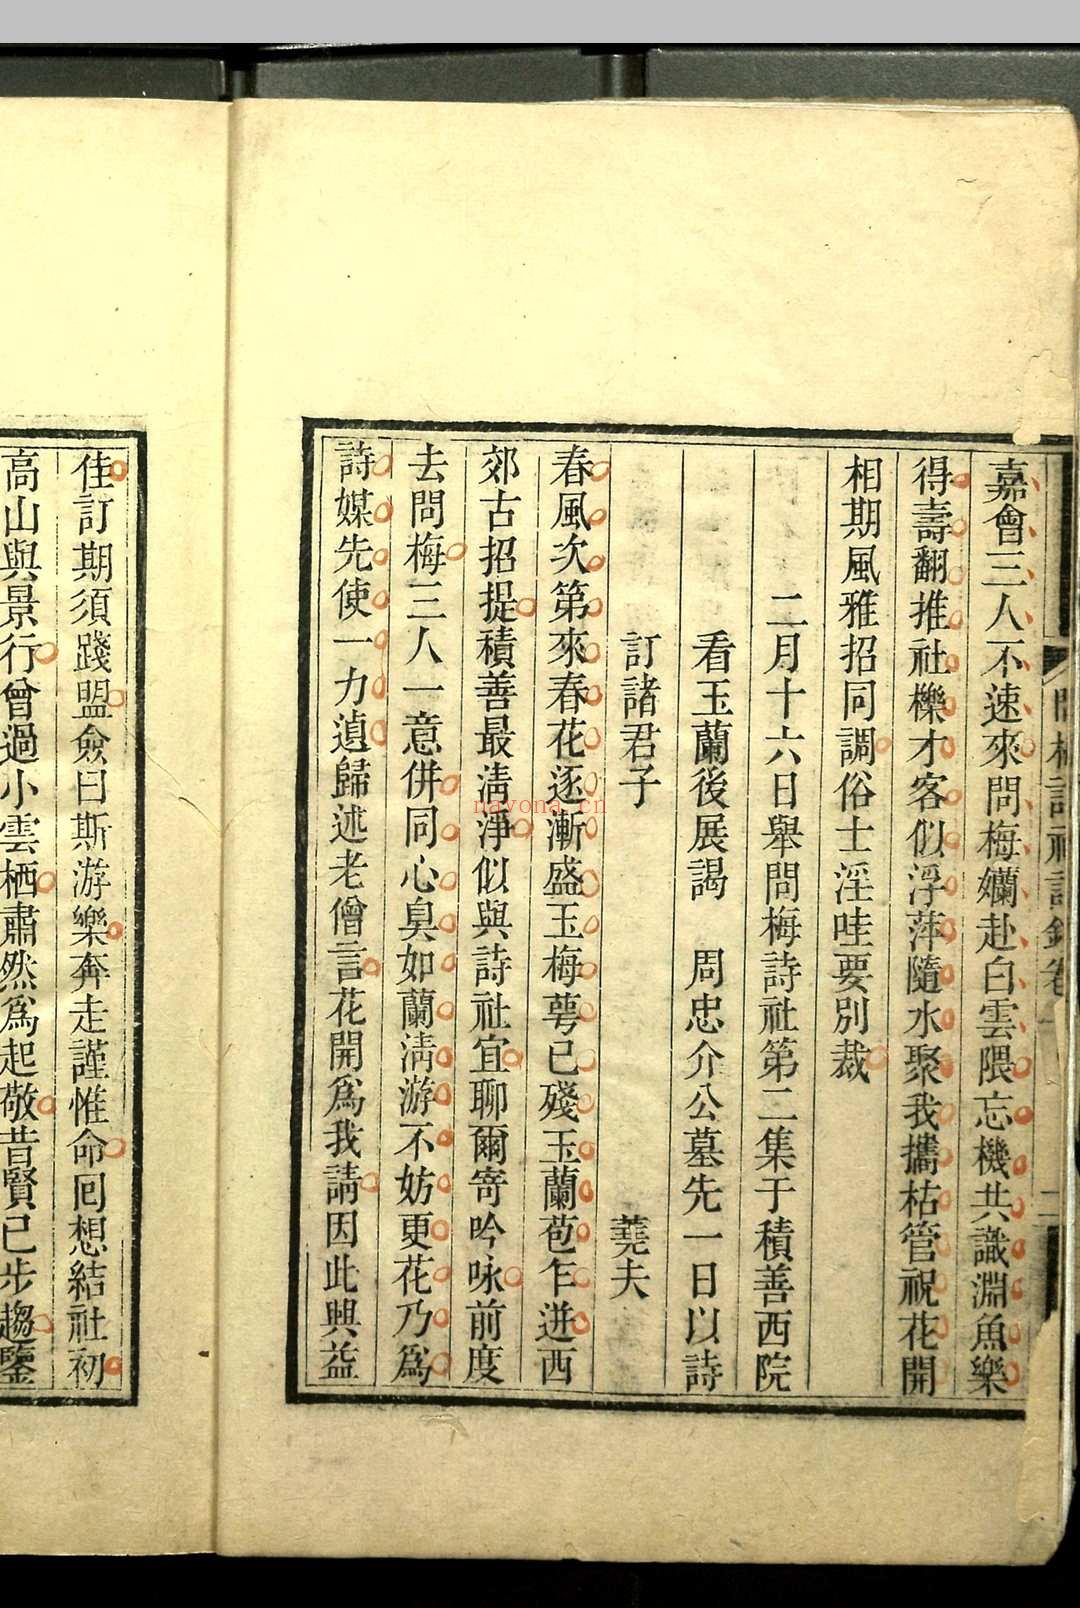 嘉會三人不速來問梅孏赴白雲隈忘機共識淵魚樂
得壽翻推社櫟才客似浮萍隨水聚我攜枯管祝花開
相期風雅招同調俗士淫哇要別裁
二月十六日舉問梅詩社第二集于積善西院
看玉蘭後展謁　周忠介公墓先一日以詩
訂諸君子　蕘夫
春風次第來春花逐漸盛玉梅萼已殘玉蘭苞乍迸西
郊古招提積善最清淨似與詩社宜聊爾寄吟咏前度
去問梅三人一意併同心臭如蘭清游不妨更花乃為
詩媒先使一力遉歸述老僧言花開為我請因此興益
佳訂期須踐盟僉曰斯游樂奔走謹惟命囘想結社初
高山與景行曾過小雲栖肅然為起敬昔賢已步趨鑒
詩社詩鈔卷一
二
nayona.cn